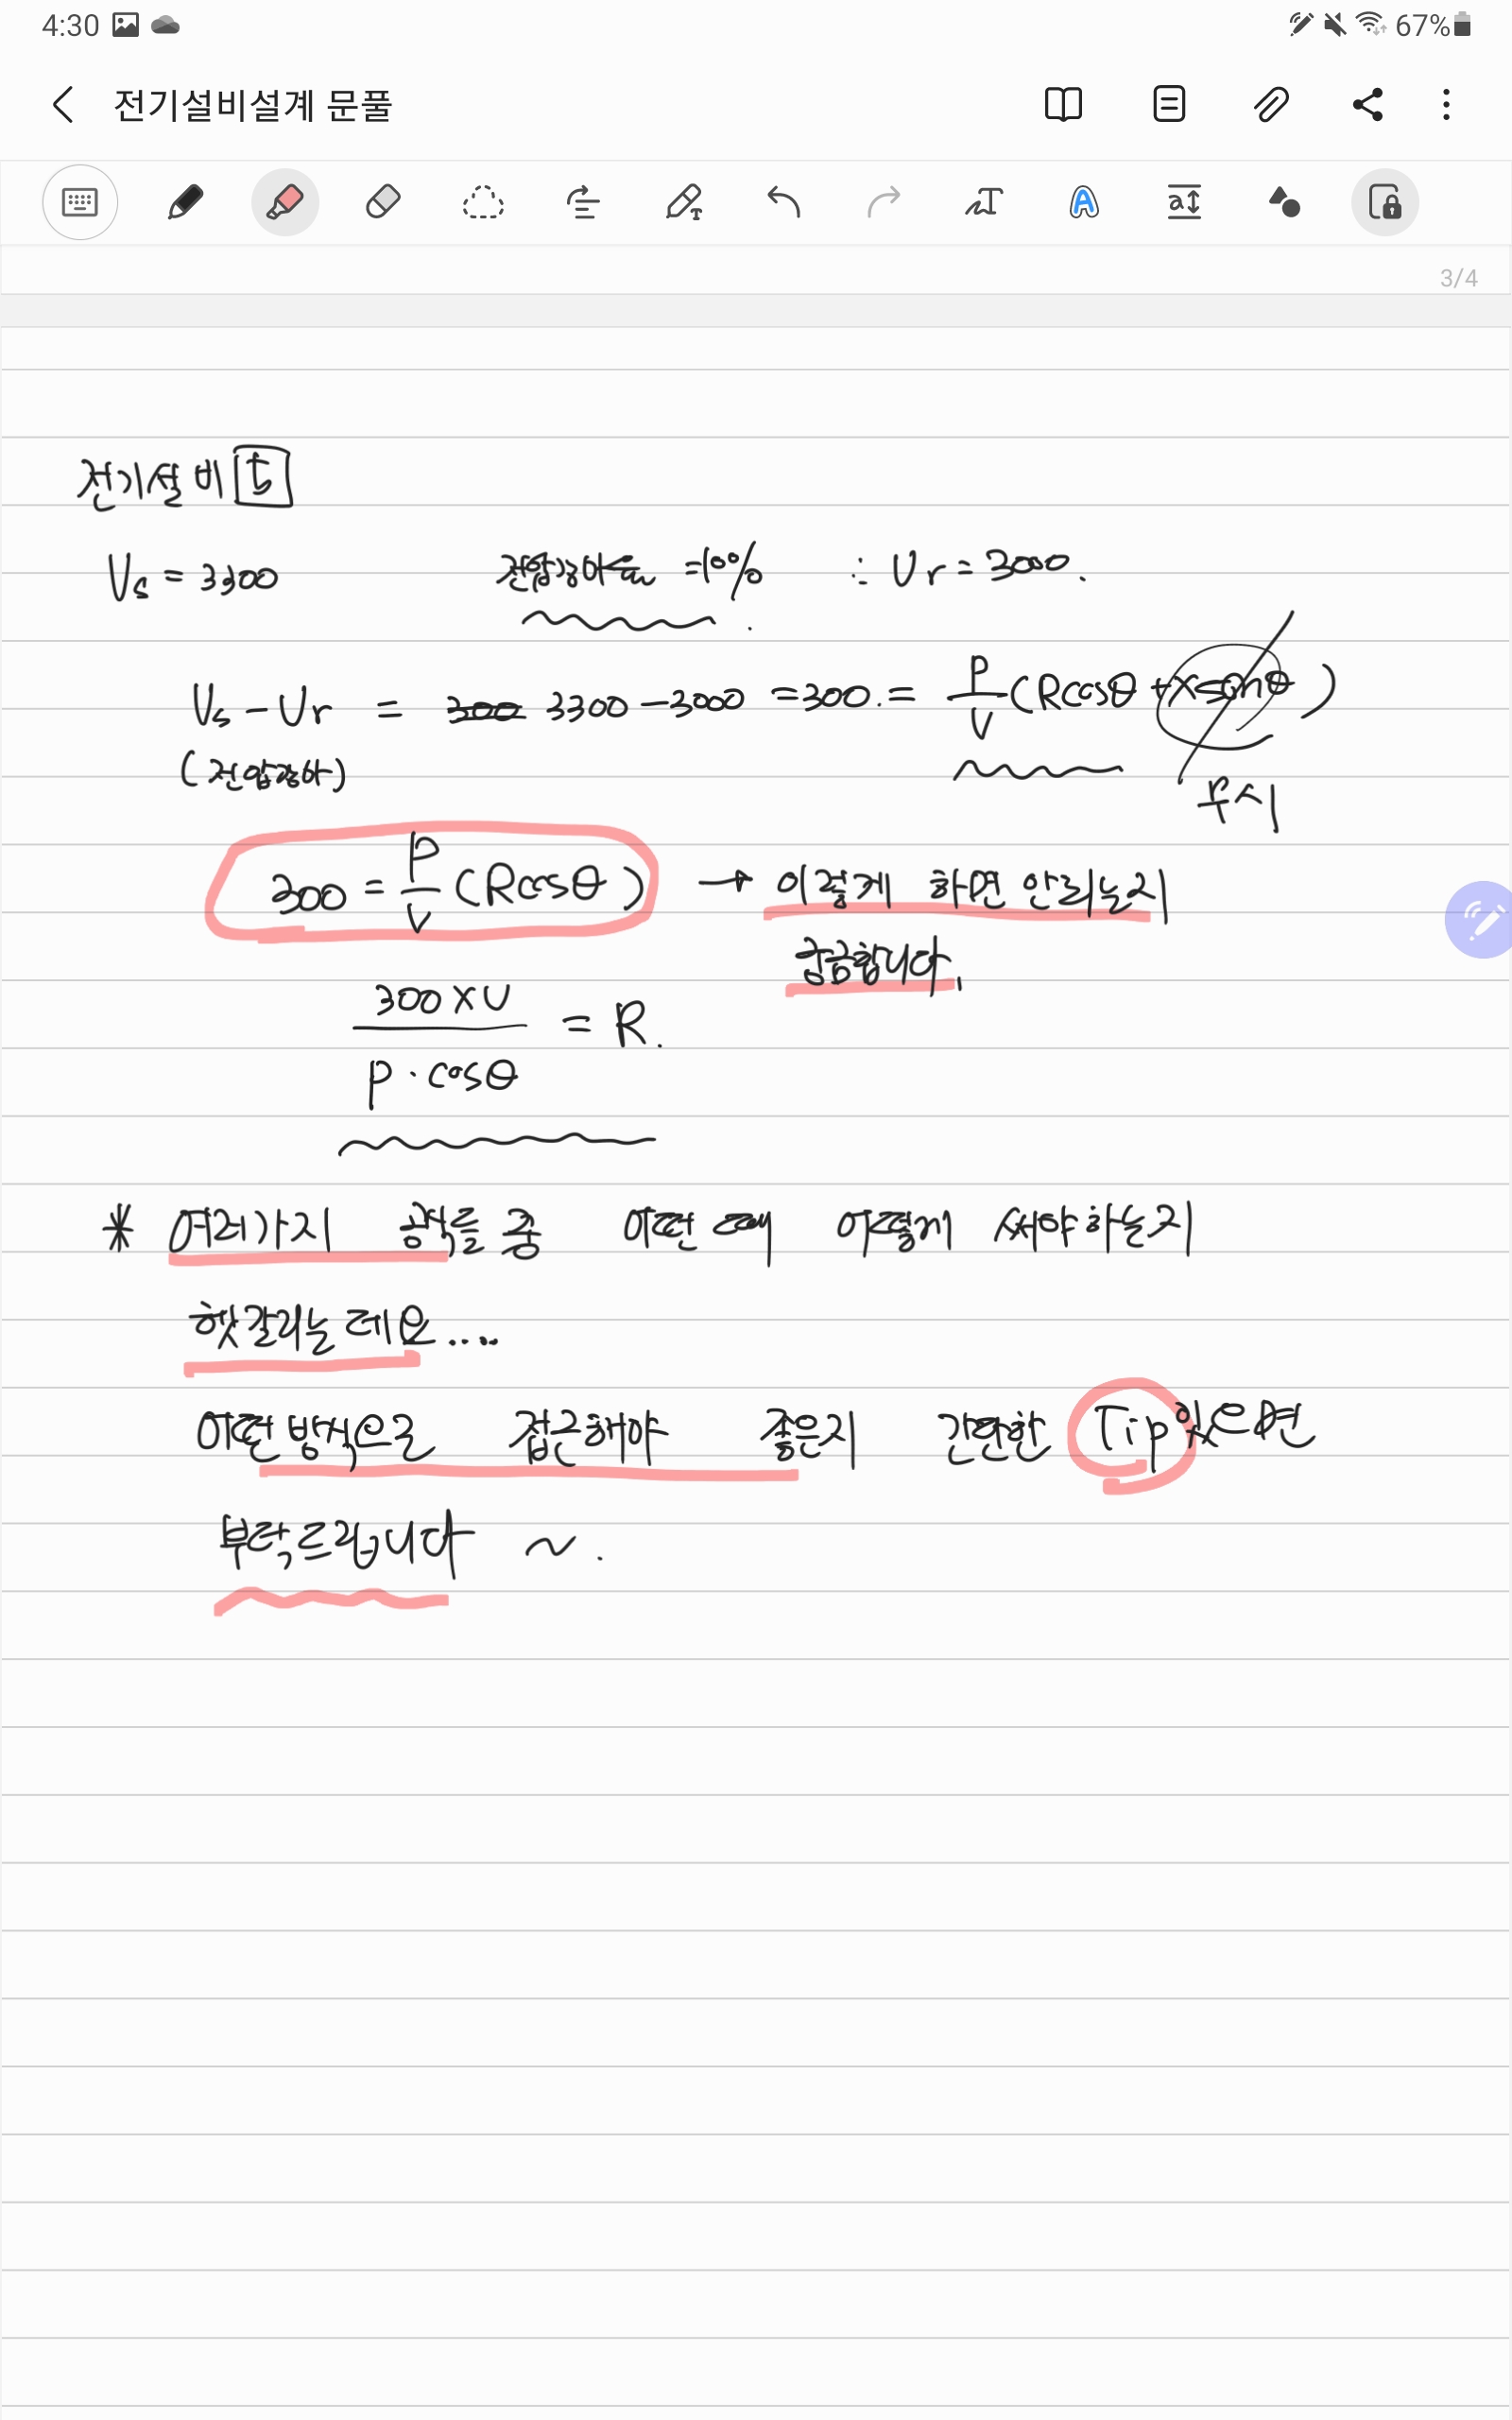 4:30 67%
전기설비설계 문풀
3/4
전기설비 5
Vs = 3300 전압강하율 = 10% ∴ Vr = 3000.
Vs - Vr = 300 3300 - 3000 = 300. = P/V (Rcosθ + Xsinθ)
(전압강하) 무시
300 = P/V (Rcosθ) → 이렇게 하면 안되는지
궁금합니다.
300 × V / P · cosθ = R.
* 여러가지 공식들 중 어떤 때 어떻게 써야 하는지
헷갈리는데요....
어떤 방식으로 접근해야 좋은지 간단한 Tip 있으면
부탁드립니다 ~.